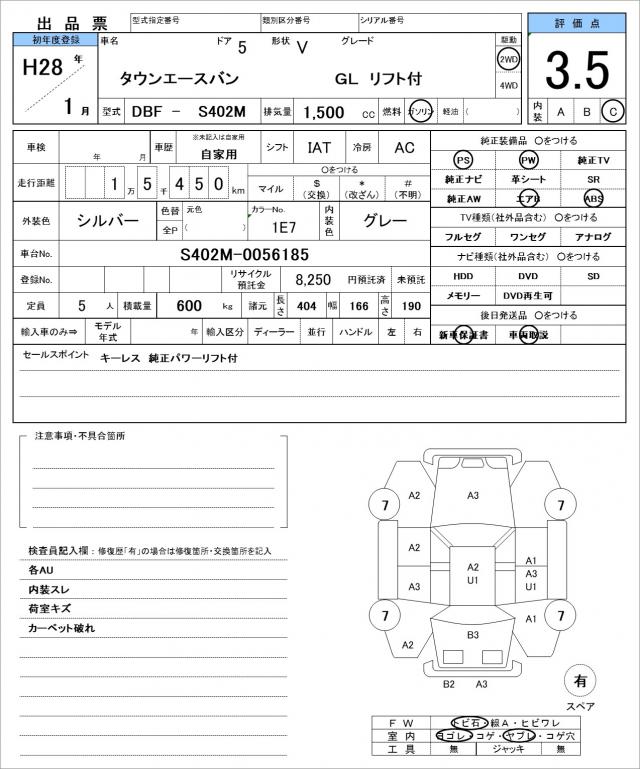 出品票 型式指定番号 類別区分番号 シリアル番号 評価点
初年度登録 車名 ドア 5 形状 V グレード 駆動
H28 年 タウンエースバン GL リフト付 2WD 3.5
4WD
1 月 型式 DBF - S402M 排気量 1,500 cc 燃料 ガソリン 軽油 ( ) 内装 A B C
車検 年 月 車歴 ※未記入は自家用 自家用 シフト IAT 冷房 AC 純正装備品 ○をつける
PS PW 純正TV
走行距離 1 万 5 千 4 5 0 km ○をつける
マイル $ (交換) * (改ざん) # (不明) 純正ナビ 革シート SR
純正AW エアB ABS
外装色 シルバー 色替 元色 カラーNo. 1E7 内装色 グレー TV種類(社外品含む) ○をつける
全P ( ) フルセグ ワンセグ アナログ
車台No. S402M-0056185 ナビ種類(社外品含む) ○をつける
登録No. リサイクル預託金 8,250 円預託済 未預託 HDD DVD SD
定員 5 人 積載量 600 kg 諸元 長さ 404 幅 166 高さ 190 メモリー DVD再生可
後日発送品 ○をつける
輸入車のみ⇒ モデル年式 年 輸入区分 ディーラー 並行 ハンドル 左 右 新車保証書 車両取説
セールスポイント キーレス 純正パワーリフト付
注意事項・不具合箇所
検査員記入欄：修復歴「有」の場合は修復箇所・交換箇所を記入
各AU
内装スレ
荷室キズ
カーペット破れ
A2 A3 A2
7 7
A2 A2 U1 A1
A3 A3 U1
7 A1 7
A2 B3
B2 A3
有
スペア
FW トビ石・線A・ヒビワレ
室内 ヨゴレ・コゲ・ヤブレ・コゲ穴
工具 無 ジャッキ 無